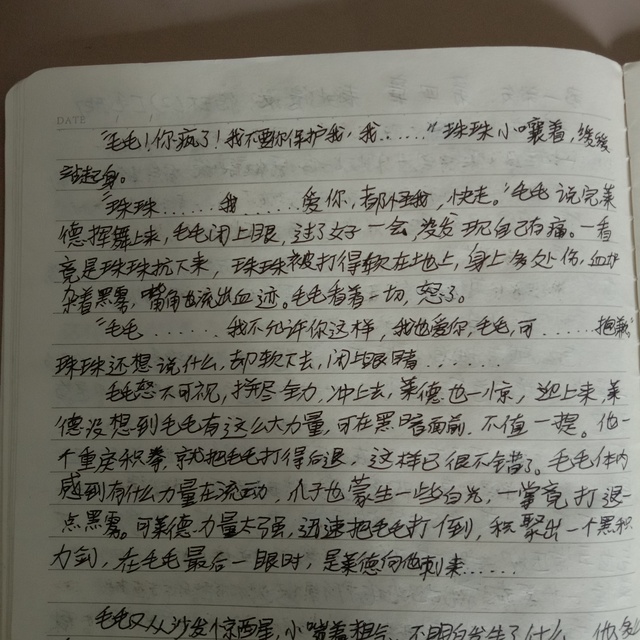 DATE
"毛毛！你疯了！我不要你保护我，我……"珠珠小嚷着，缓缓
站起身。
"珠珠……我……爱你，都怪我，快走。"毛毛说完莱
德挥舞上来，毛毛闭上眼，过了好一会，没发现自己有痛。一看
竟是珠珠抗下来，珠珠被打得软在地上，身上多处伤，血
杂着黑雾，嘴角也流出血迹。毛毛看着一切，怒了。
"毛毛……我不允许你这样，我也爱你，毛毛，可……抱歉"
珠珠还想说什么，却软下去，闭上眼睛……
毛毛怒不可视，拼尽全力，冲上去，莱德也一惊，迎上来，莱
德没想到毛毛有这么大力量，可在黑暗面前，不值一提。他一
个重度积拳，就把毛毛打得后退，这样已很不错了。毛毛体内
感到有什么力量在流动，爪子也蒙生一些白光，一掌竟打退一
点黑雾。可莱德力量太强，迅速把毛毛打倒，积聚出一个黑积
力剑，在毛毛最后一眼时，是莱德向他刺来……
毛毛又从沙发惊醒，小喘着粗气，不明白发生了什么，他